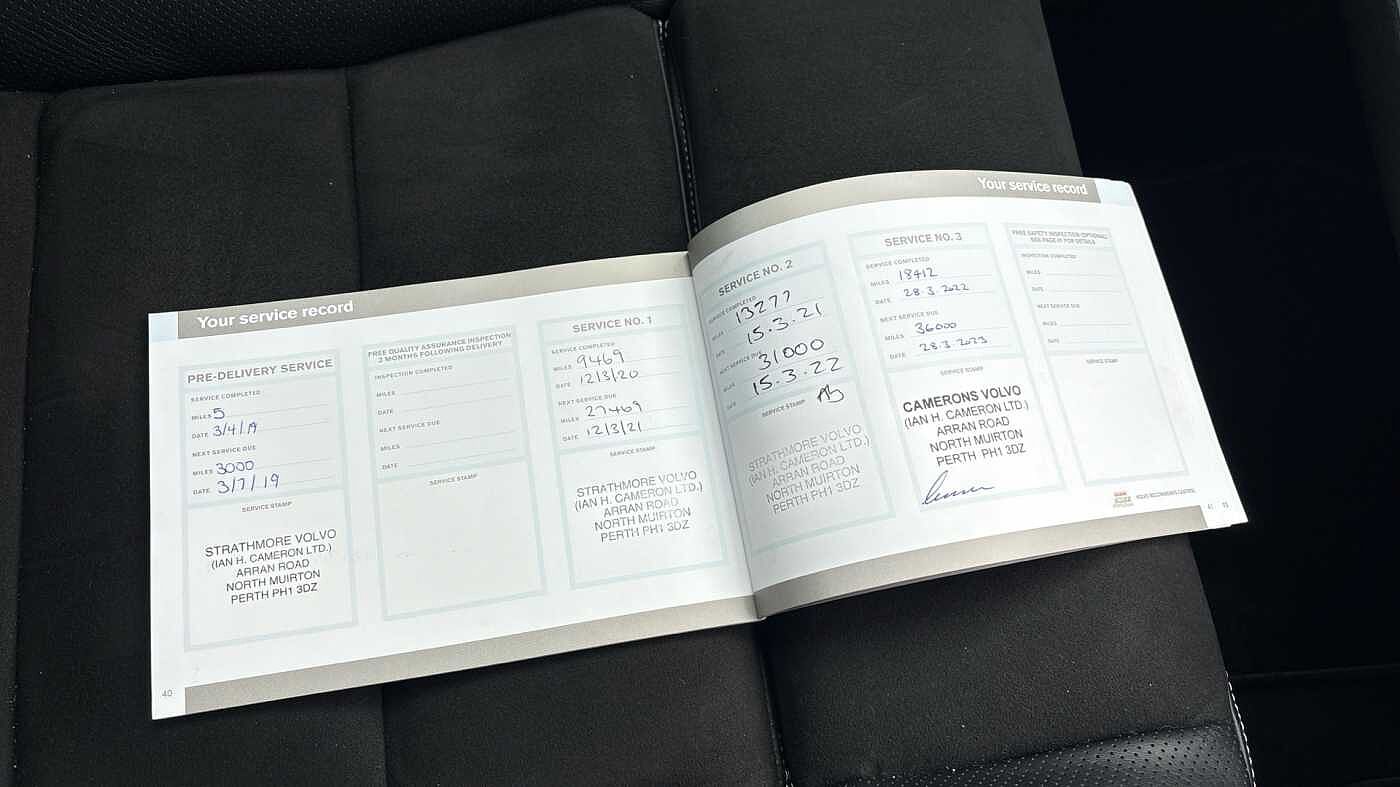 Your service record
PRE-DELIVERY SERVICE
SERVICE COMPLETED
MILES 5
DATE 3/4/19
NEXT SERVICE DUE
MILES 3000
DATE 3/7/19
SERVICE STAMP
STRATHMORE VOLVO
(IAN H. CAMERON LTD.)
ARRAN ROAD
NORTH MUIRTON
PERTH PH1 3DZ
FREE QUALITY ASSURANCE INSPECTION
3 MONTHS FOLLOWING DELIVERY
INSPECTION COMPLETED
MILES
DATE
NEXT SERVICE DUE
MILES
DATE
SERVICE STAMP
SERVICE NO. 1
SERVICE COMPLETED
MILES 9469
DATE 12/3/20
NEXT SERVICE DUE
MILES 27469
DATE 12/3/21
SERVICE STAMP
STRATHMORE VOLVO
(IAN H. CAMERON LTD.)
ARRAN ROAD
NORTH MUIRTON
PERTH PH1 3DZ
40
Your service record
SERVICE NO. 2
SERVICE COMPLETED
MILES 13277
DATE 15.3.21
NEXT SERVICE DUE
MILES 31000
DATE 15.3.22
SERVICE STAMP
STRATHMORE VOLVO
(IAN H. CAMERON LTD.)
ARRAN ROAD
NORTH MUIRTON
PERTH PH1 3DZ
SERVICE NO. 3
SERVICE COMPLETED
MILES 18412
DATE 28.3.2022
NEXT SERVICE DUE
MILES 36000
DATE 28.3.2023
SERVICE STAMP
CAMERONS VOLVO
(IAN H. CAMERON LTD.)
ARRAN ROAD
NORTH MUIRTON
PERTH PH1 3DZ
FREE SAFETY INSPECTION (OPTIONAL)
SEE PAGE 17 FOR DETAILS
INSPECTION COMPLETED
MILES
DATE
NEXT SERVICE DUE
MILES
DATE
SERVICE STAMP
VOLVO RECOMMENDS CASTROL
41